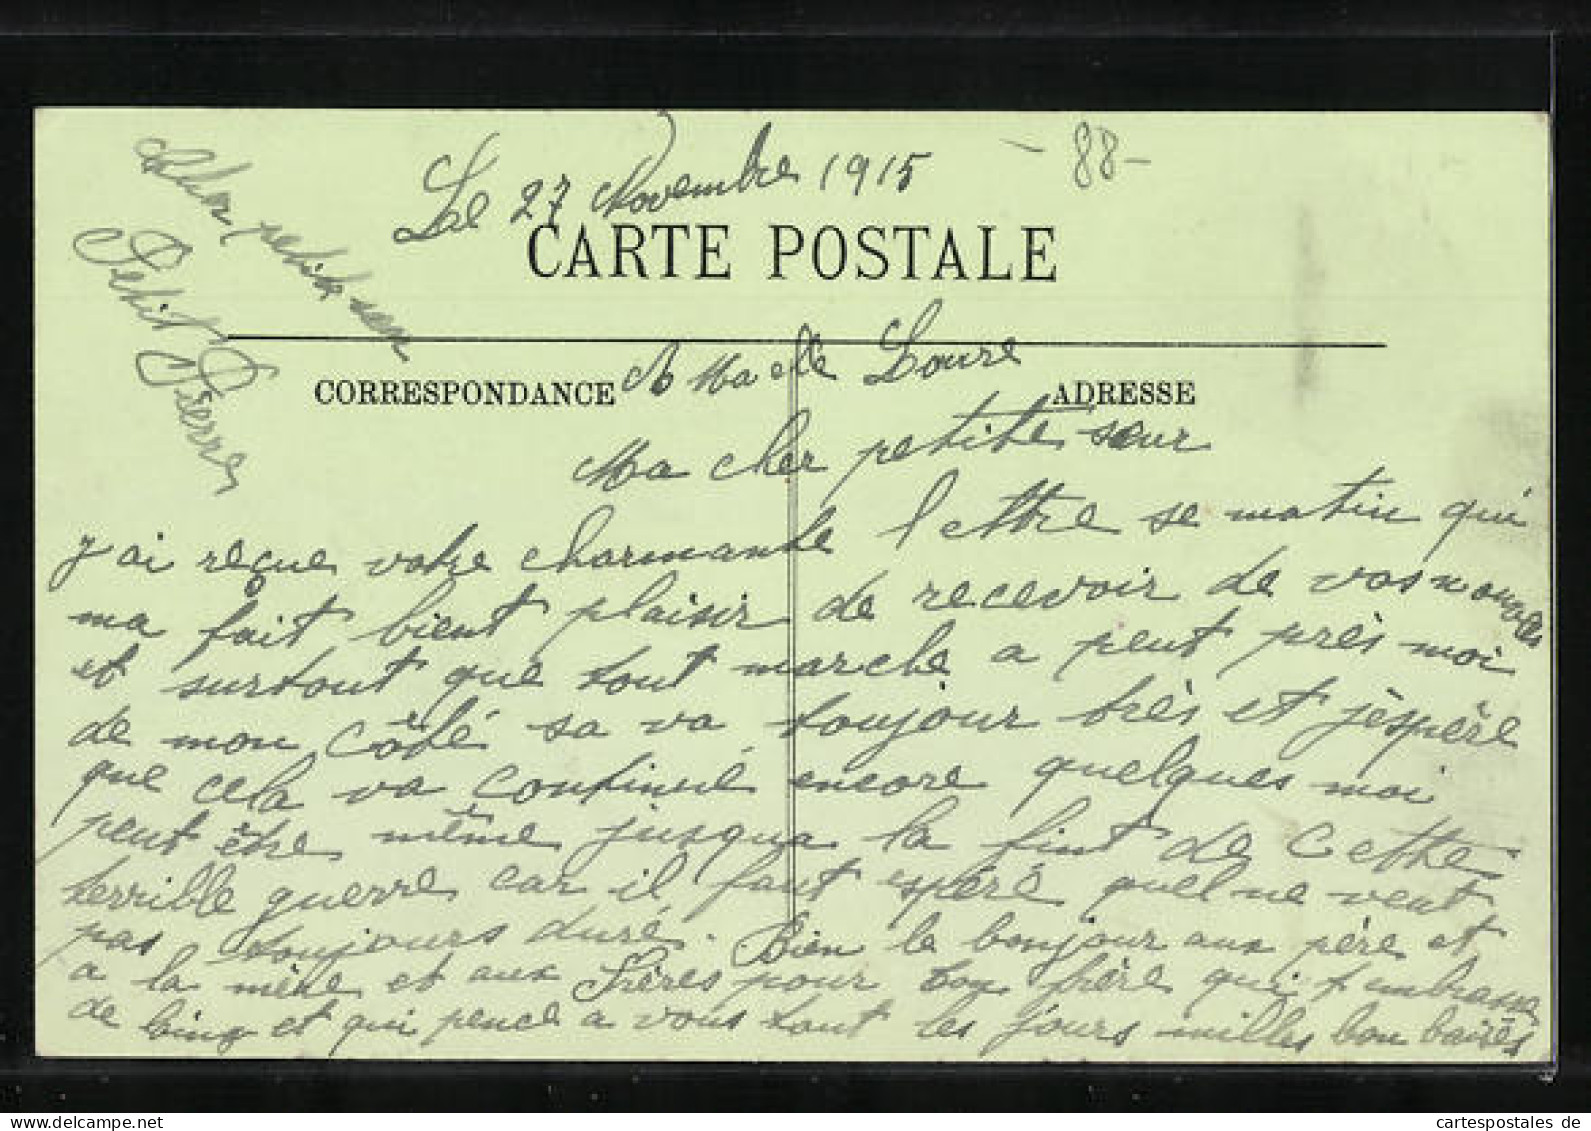 Le 27 Novembre 1915
- 88 -
CARTE POSTALE
petite seur
Petit Pierre
CORRESPONDANCE
A Ma elle Loure
ADRESSE
Ma cher petite seur
J'ai reçue votre charmante lettre se matin qui
ma fait bient plaisir de recevoir de vos nouvelles
et surtout que tout marche a peut près moi
de mon côté sa va toujour très et j'éspère
que cela va continué encore quelques moi
peut être même jusqua la fint de cette
terrible guerre car il faut espéré quel ne veut
pas toujours duré. Bien le bonjour aux père et
a la mère et aux frères pour ton frère qui t'embrasse
de loing et qui pence a vous tout les jours milles bon baisés
cartespostales de